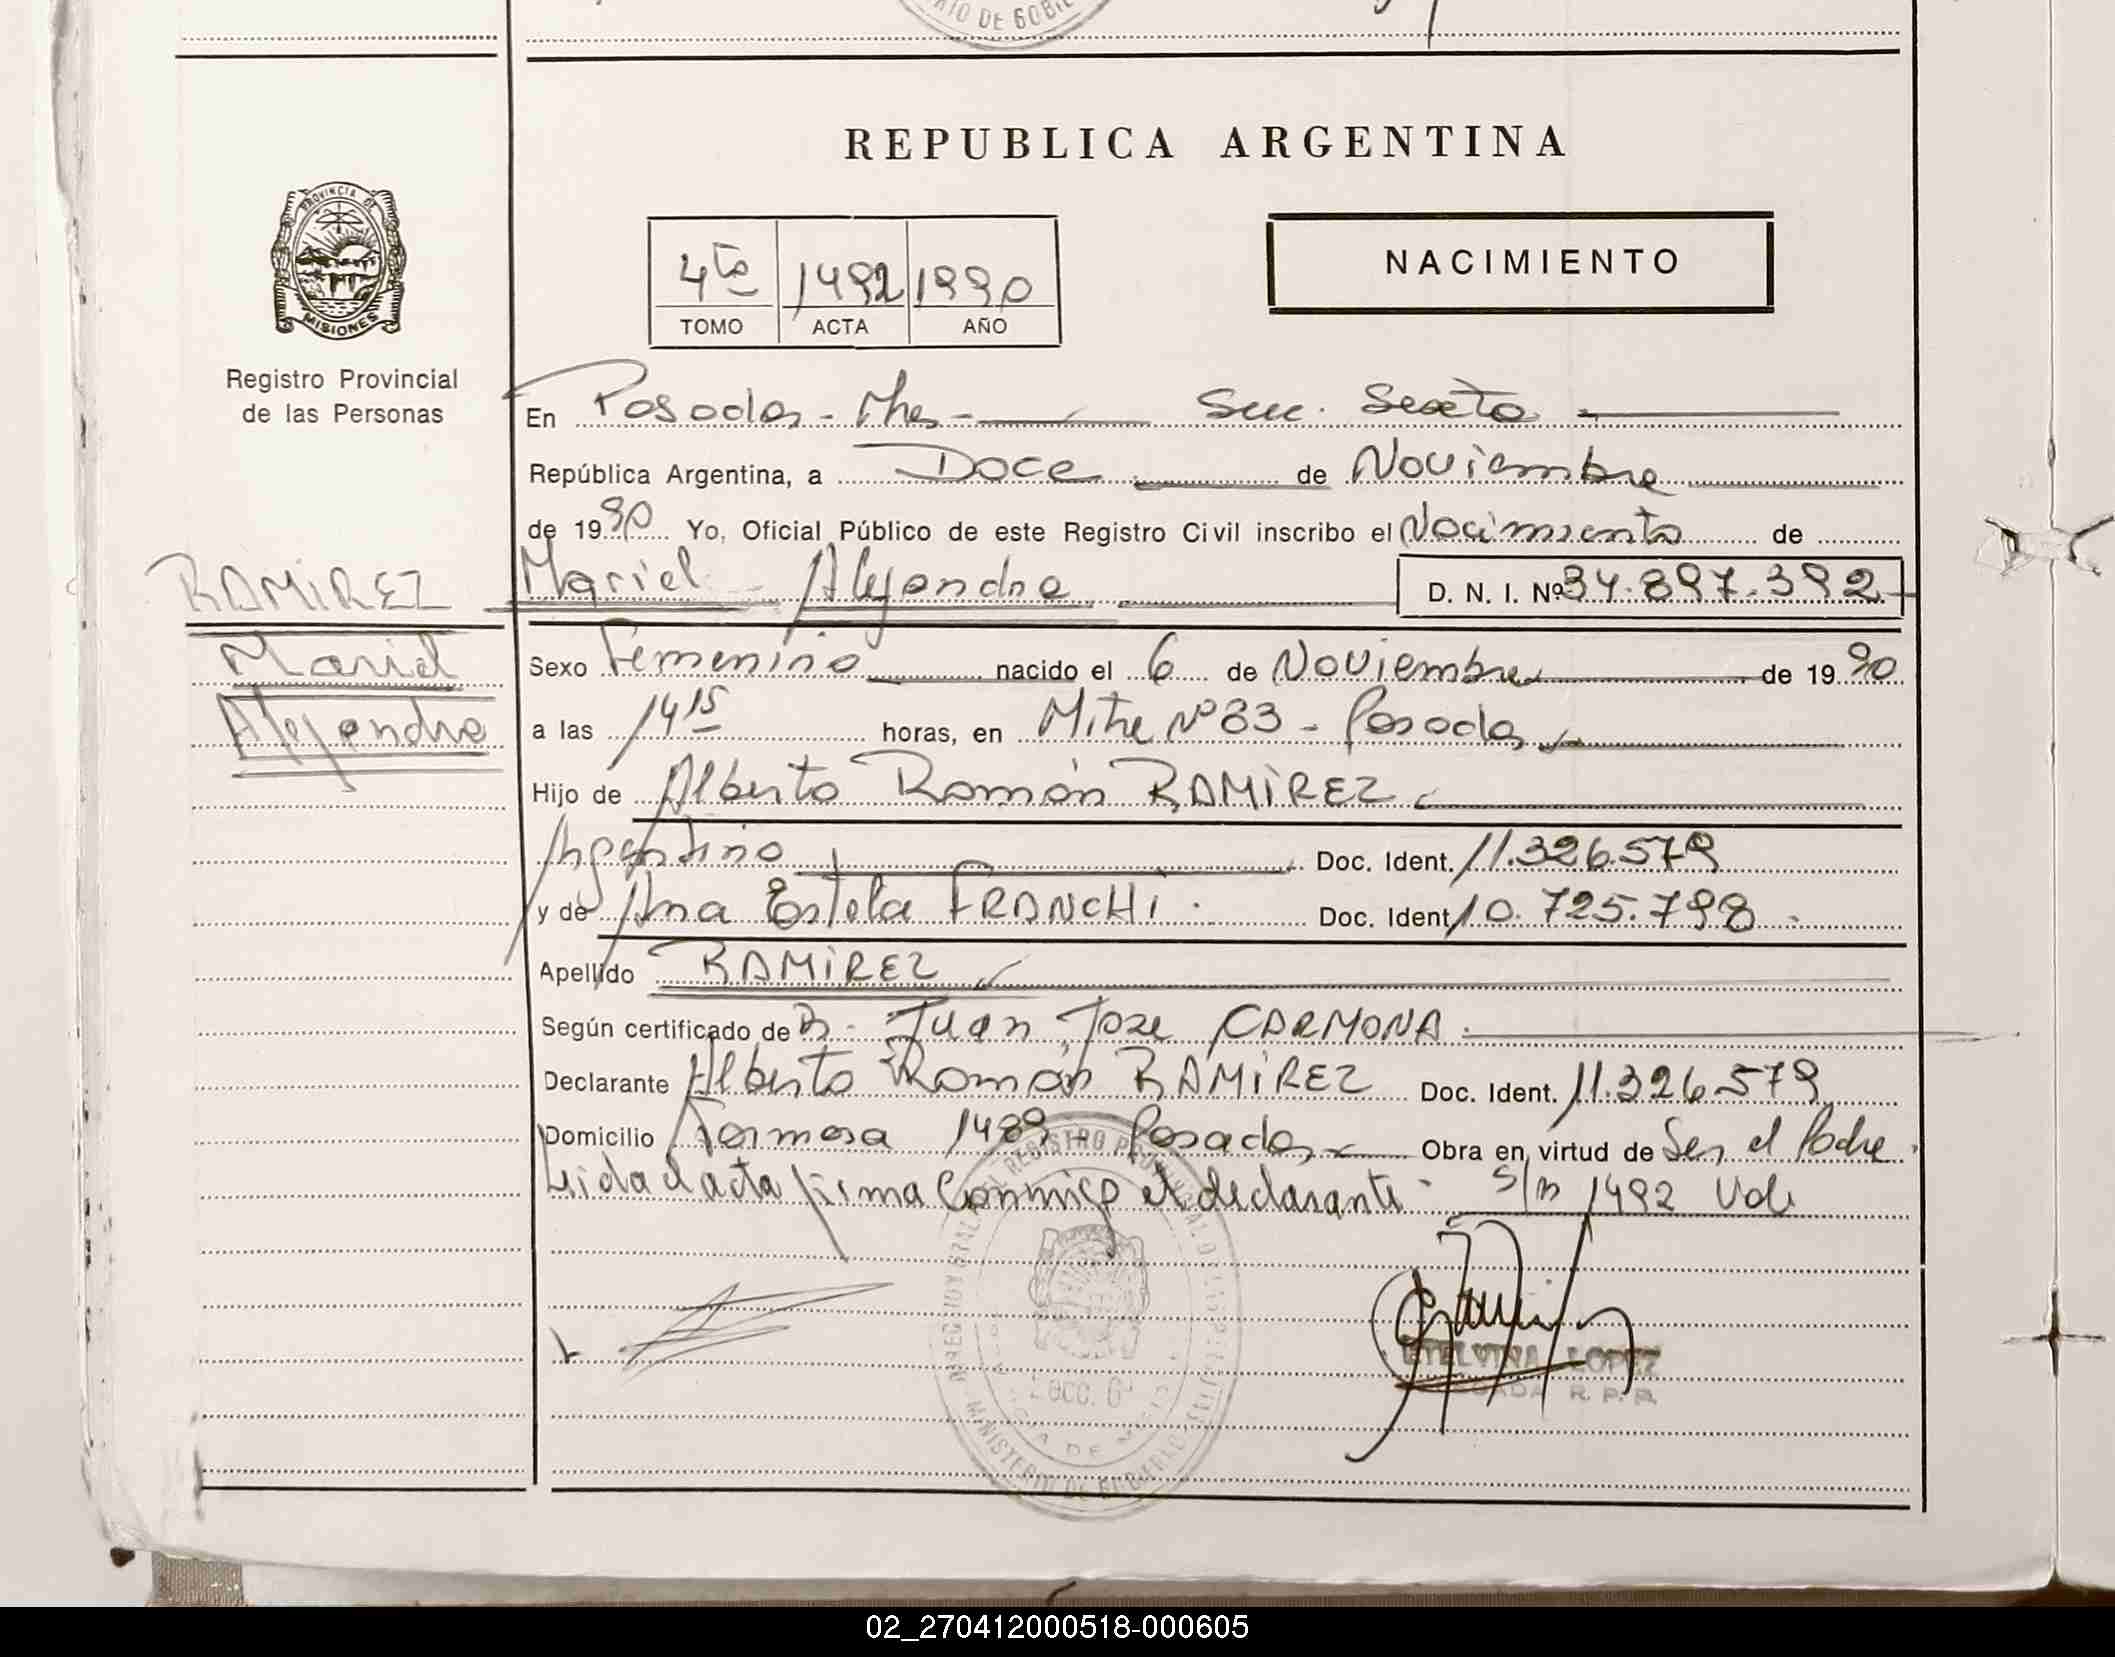 REPUBLICA ARGENTINA
PROVINCIA DE
MISIONES
Registro Provincial
de las Personas
4to 1492 1990
TOMO ACTA AÑO
NACIMIENTO
En Posadas - Mnes - Secc. Sexta
República Argentina, a Doce de Noviembre
de 1990 Yo, Oficial Público de este Registro Civil inscribo el Nacimiento de
RAMIREZ
Mariel
Alejandra
Mariel Alejandra D. N. I. Nº 34.897.392
Sexo Femenino nacido el 6 de Noviembre de 1990
a las 14 15 horas, en Mitre Nº 83 - Posadas
Hijo de Alberto Román RAMIREZ
Argentino Doc. Ident. 11.326.579
y de Ana Estela FRANCHI. Doc. Ident. 10.725.798
Apellido RAMIREZ
Según certificado de Dr. Juan Jose CARMONA.
Declarante Alberto Román RAMIREZ Doc. Ident. 11.326.579
Domicilio Formosa 1489 - Posadas Obra en virtud de Ser el Padre.
Leida el acta firma Conmigo el declarante - S/B 1492 Vale
ETELVINA LOPEZ
R. P. P.
MINISTERIO DE GOBIERNO
02_270412000518-000605